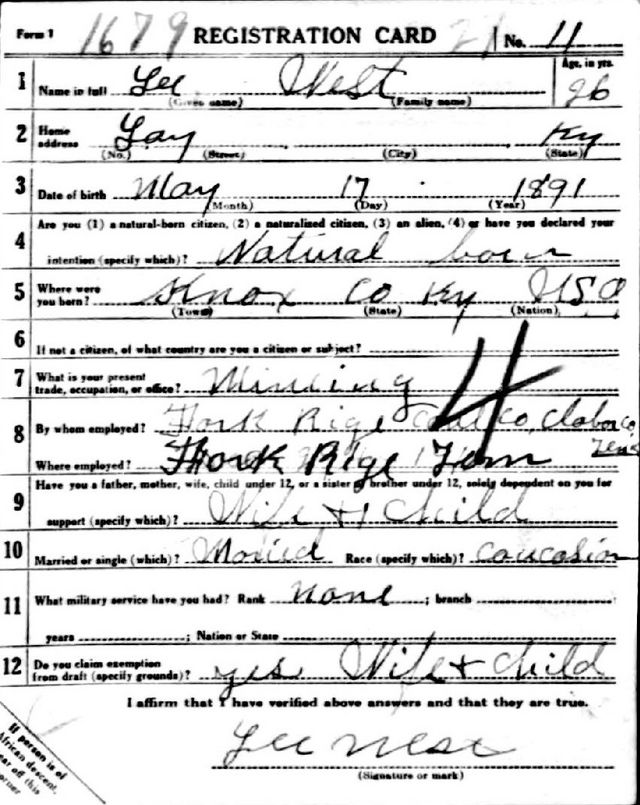 Form 1 1679 REGISTRATION CARD 21 No. 11
1 Name in full Lee West Age, in yrs. 26
(Given name) (Family name)
2 Home address Gay Ky
(No.) (Street) (City) (State)
3 Date of birth May 17 1891
(Month) (Day) (Year)
4 Are you (1) a natural-born citizen, (2) a naturalized citizen, (3) an alien, (4) or have you declared your
intention (specify which)? Natural born
5 Where were you born? Knox Co Ky USA
(Town) (State) (Nation)
6 If not a citizen, of what country are you a citizen or subject?
7 What is your present trade, occupation, or office? Mineing
8 By whom employed? Fork Rige Coal Co, Claborn Co, Tenn
Where employed? Fork Rige Tenn
4
9 Have you a father, mother, wife, child under 12, or a sister or brother under 12, solely dependent on you for
support (specify which)? Wife + Child
10 Married or single (which)? Maried Race (specify which)? Caucasian
11 What military service have you had? Rank None ; branch
years ; Nation or State
12 Do you claim exemption from draft (specify grounds)? yes Wife + Child
I affirm that I have verified above answers and that they are true.
Lee West
(Signature or mark)
If person is of
African descent,
tear off this
corner